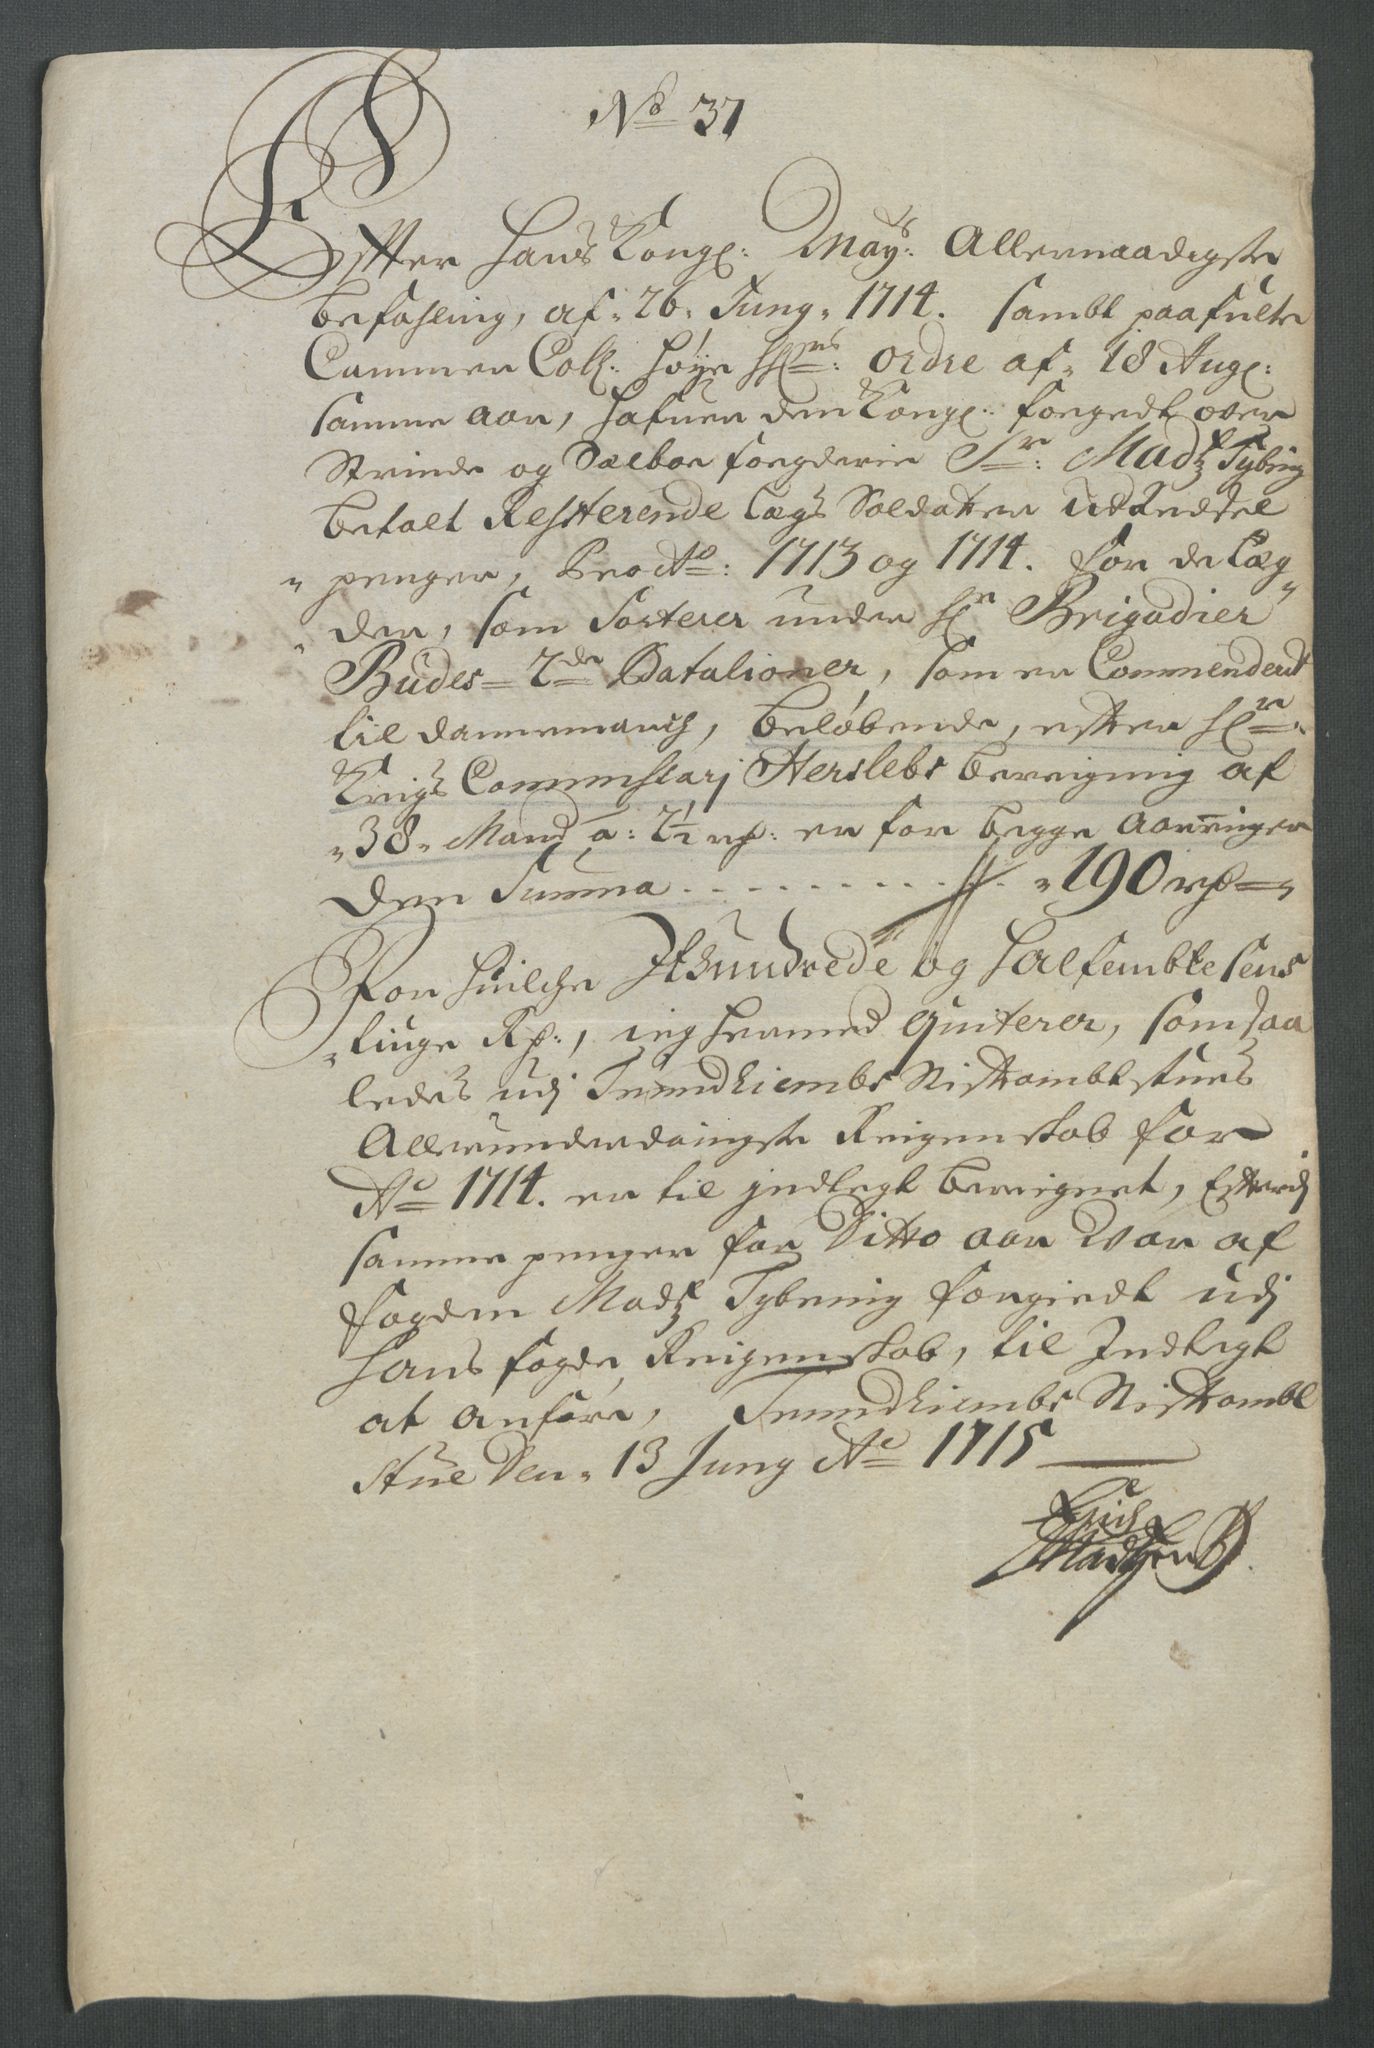 No 37
Efter Hans Kongl: Mays: Allernaadigste
befahling, af 26 Juny 1714. sambt paafulte
Cammer Coll: høye HErns: ordre af 18 Aug:
samme aar, hafuer den Kongl: foeget over
Strinde og Sælboe foegderie Sr: Madtz Tybring
betalt Resterende Lægs Soldatter udRedsel
penger, Pro Ao: 1713 og 1714. for de Læg-
der, som Sorterer under Hr Brigadier
Budes 2de Batalioner, som er Commenderet
til Dannemarch, beløbende, efter Hr:
Krigs Commissarj Herslebs beregning af
38 Mand a: 2½ rd: er for begge Aaringer
den Summa . . . . . . . . . . 190 rd
For huilche Ithundrede og Halfembtesens
tiuge Rd:, ieg hermed quiterer, som saa
ledes udj Trundhiembs Stiftambtstues
Allerunderdanigste Reigenskab for
Ao 1714. er til Indtegt beregnet, Efterdj
samme penger for Ditto aar var af
fogden Madtz Tybring forgiedt udj
Hans fogde Reigenskab, til Indtegt
at anføre, Trundhiembs Stiftambt
stue Den 13 Juny Ao 1715
Erich
Madtzen